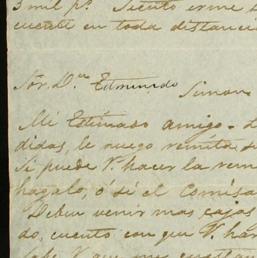 3 mil ps. Siento
cuente en toda distanci
Sor. Dn. Edmundo
Simon
Mi Estimado amigo-
didas, le ruego remita
Si puede V. hacer la rem
hagalo, ó sé el Comisa
Deben venir mas cajas
do, cuento con que V. har